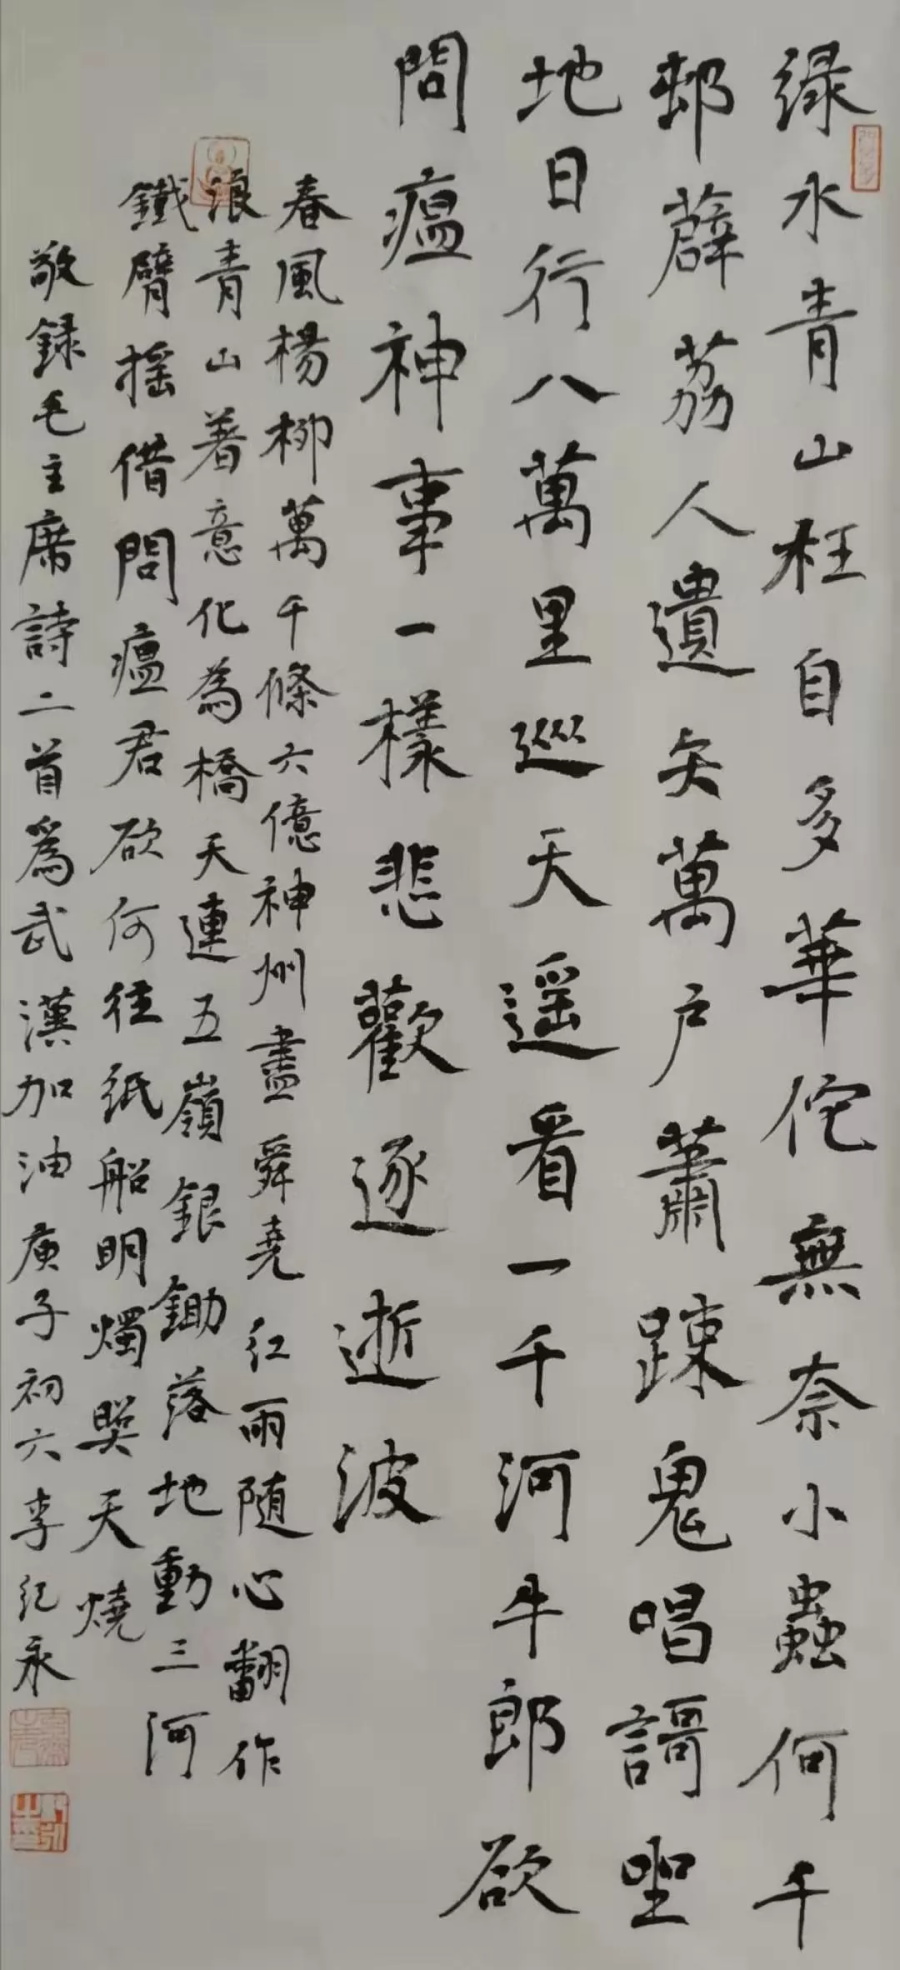 緑水青山枉自多華佗無奈小蟲何千
邨薜荔人遺矢萬户蕭踈鬼唱謌坐
地日行八萬里巡天遥看一千河牛郎欲
問瘟神事一樣悲歡逐逝波
春風楊柳萬千條六億神州盡舜堯红雨随心翻作
浪青山着意化為橋天連五嶺銀鋤落地動三河
鐵臂摇借問瘟君欲何往紙船明燭照天燒
敬録毛主席詩二首爲武漢加油庚子初六李紀永